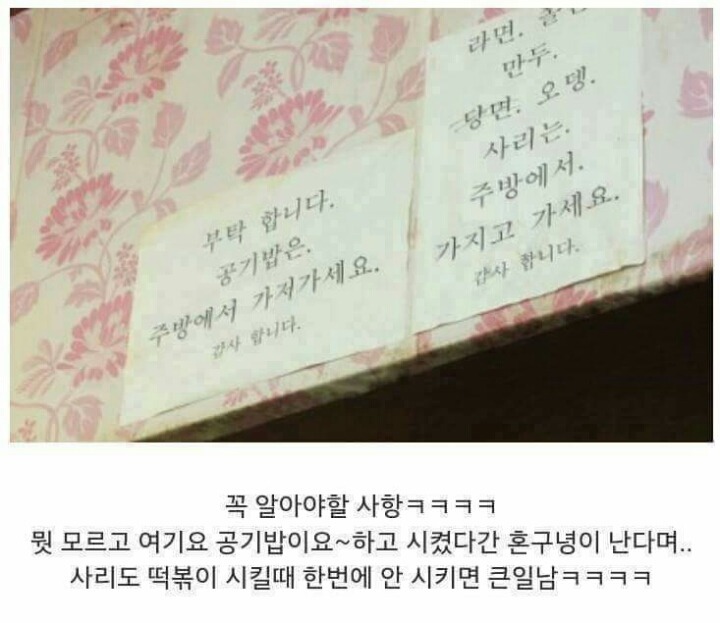 부탁 합니다.
공기밥은.
주방에서 가저가세요.
감사 합니다.
라면.
만두.
당면. 오뎅.
사리는.
주방에서.
가지고 가세요.
감사 합니다.
꼭 알아야할 사항ㅋㅋㅋㅋ
뭣 모르고 여기요 공기밥이요~하고 시켰다간 혼구녕이 난다며..
사리도 떡볶이 시킬때 한번에 안 시키면 큰일남ㅋㅋㅋㅋ